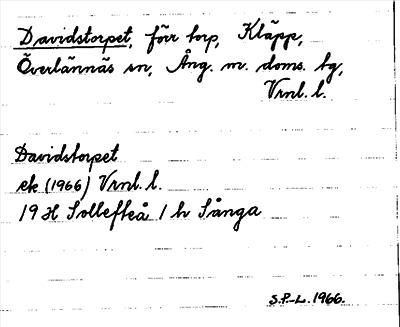 Davidstorpet, förr torp, Kläpp,
Överlännäs sn, Ång. m. doms. tg,
Vrnl. l.
Davidstorpet
ek (1966) Vrnl. l.
19 H Sollefteå 1 h Sånga
S.P-L. 1966.